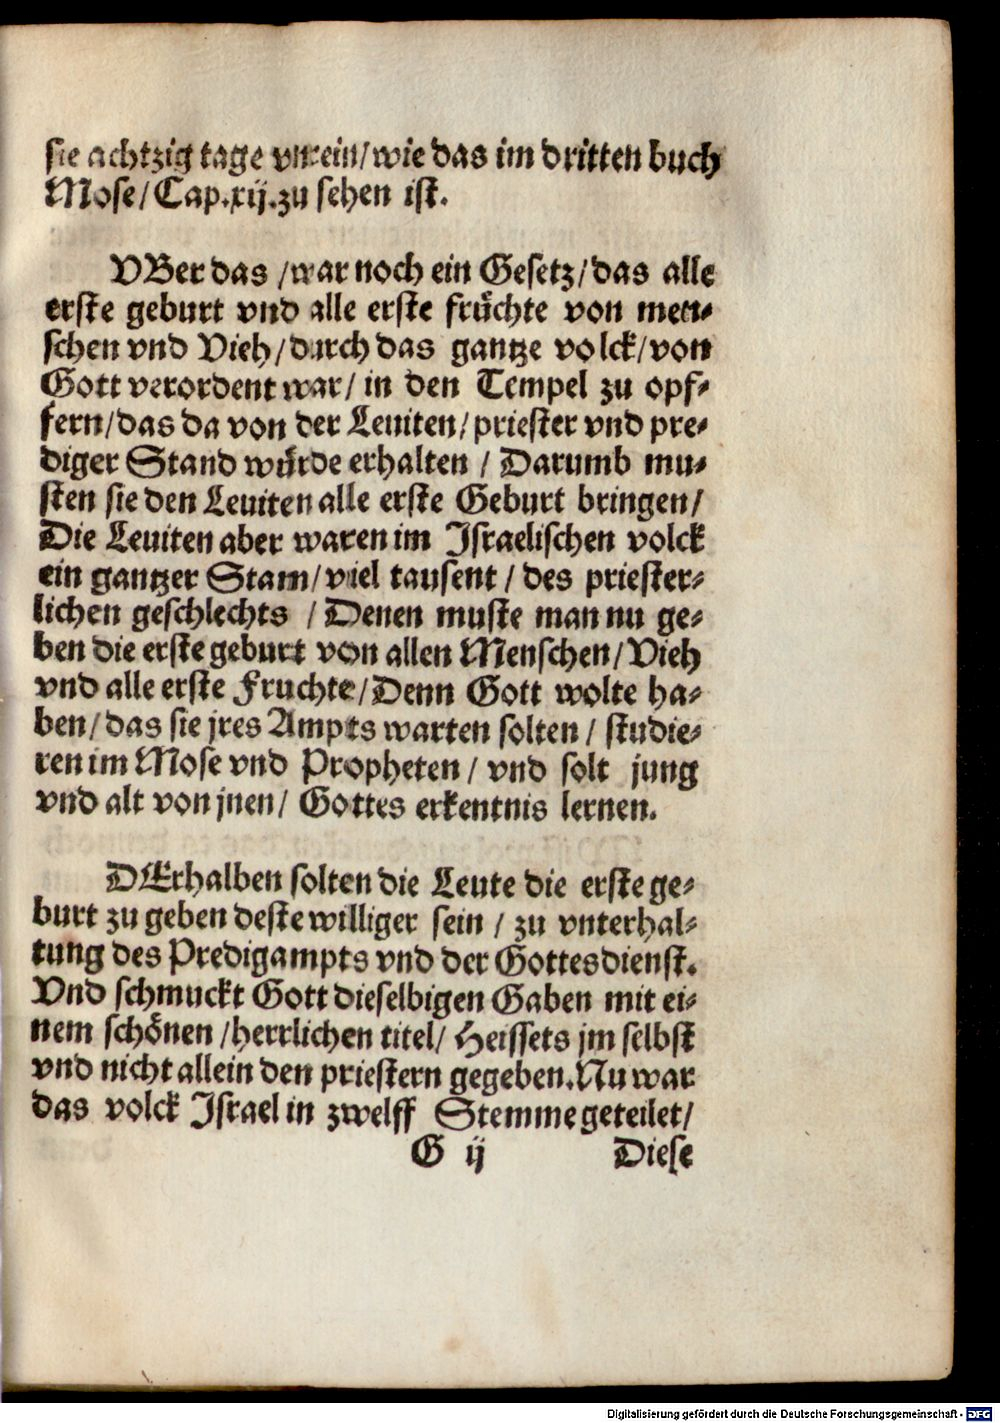 sie achtzig tage vnrein/wie das im dritten buch
Mose/Cap.xij.zu sehen ist.
VBer das /war noch ein Gesetz/das alle
erste geburt vnd alle erste früchte von men-
schen vnd Vieh/durch das gantze volck/von
Gott verordent war/ in den Tempel zu opf-
fern/das da von der Leuiten/priester vnd pre-
diger Stand würde erhalten / Darumb mu-
sten sie den Leuiten alle erste Geburt bringen/
Die Leuiten aber waren im Israelischen volck
ein gantzer Stam/viel tausent / des priester-
lichen geschlechts / Denen muste man nu ge-
ben die erste geburt von allen Menschen/Vieh
vnd alle erste Fruchte/Denn Gott wolte ha-
ben/das sie jres Ampts warten solten / studie-
ren im Mose vnd Propheten / vnd solt jung
vnd alt von jnen/ Gottes erkentnis lernen.
DErhalben solten die Leute die erste ge-
burt zu geben deste williger sein / zu vnterhal-
tung des Predigampts vnd der Gottesdienst.
Vnd schmuckt Gott dieselbigen Gaben mit ei-
nem schönen /herrlichen titel/ Heissets jm selbst
vnd nicht allein den priestern gegeben.Nu war
das volck Israel in zwelff Stemme geteilet/
G ij Diese
Digitalisierung gefördert durch die Deutsche Forschungsgemeinschaft - DFG